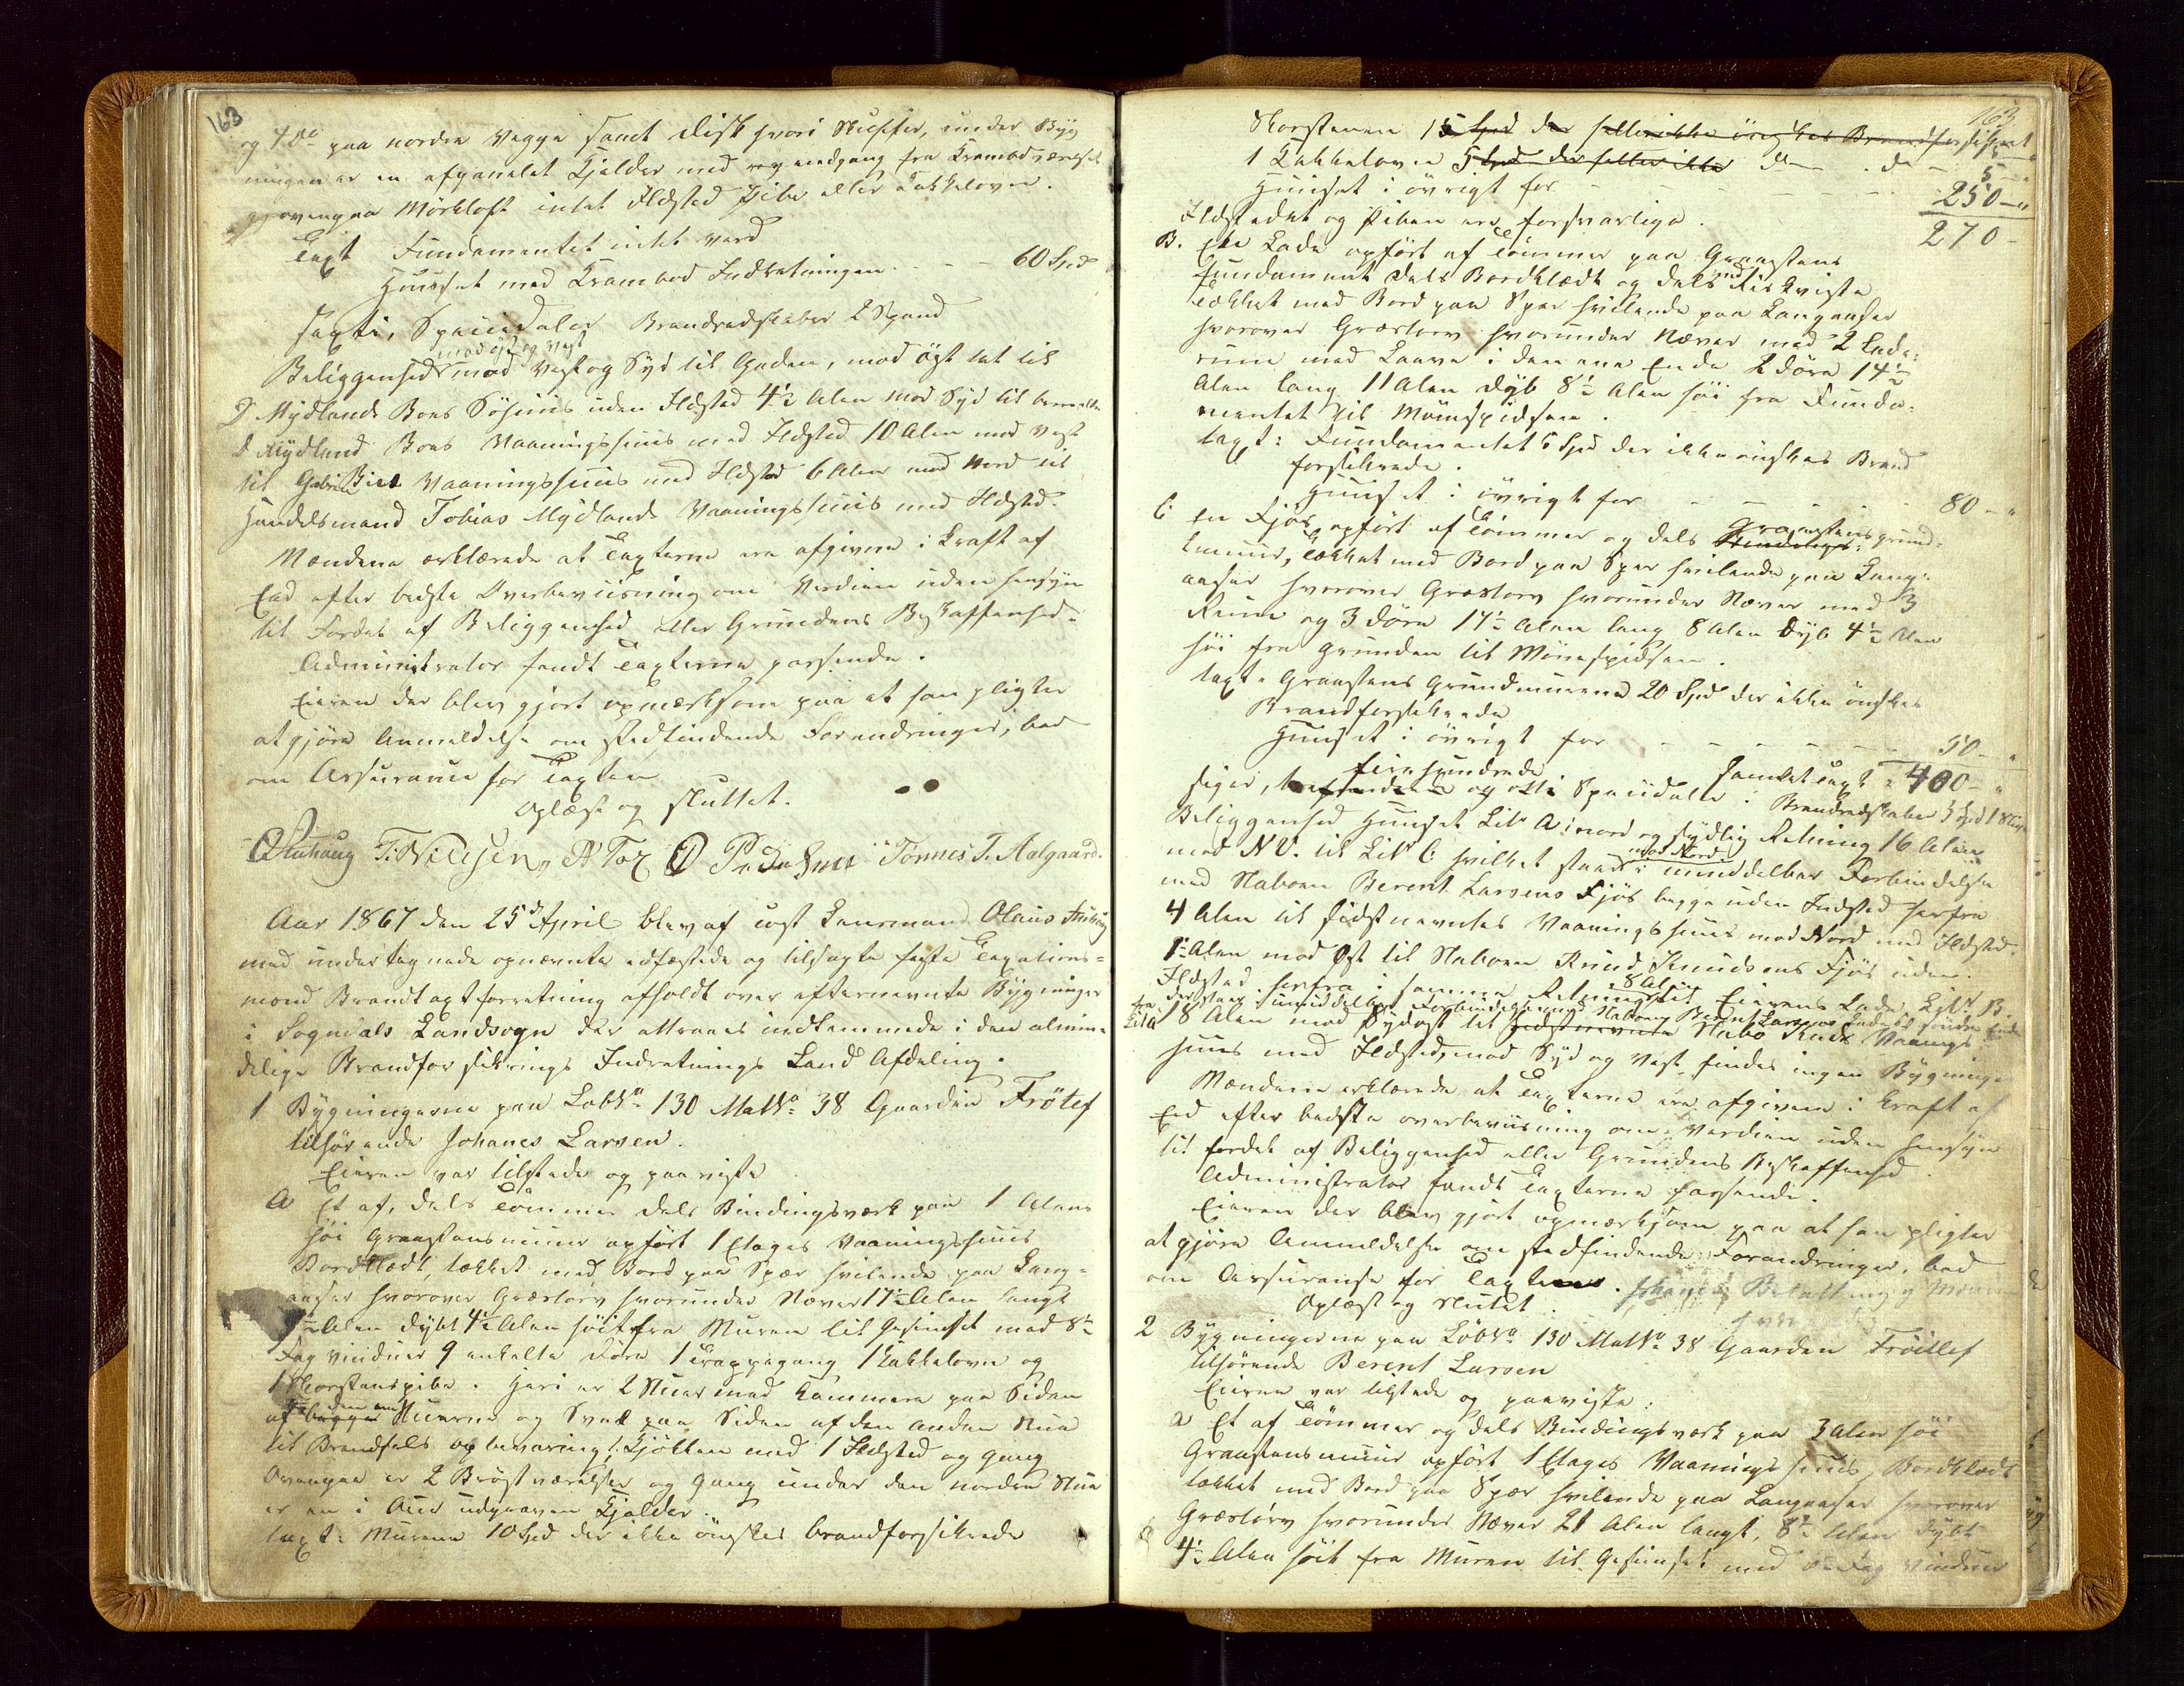 163
og 4 do paa nordre Vægge samt Disk hvori Skuffer, under Byg
ningen er en afpanelet Kjelder med nedgang fra Krambodværelset
ovenpaa Mörkloft intet Ildsted Pibe eller Kakkelovn.
Taxt Fundamentet intet værd
Huuset med Krambod Indretningen - - - 60 Spd
sexti, Speciedaler Brandredskaber 2 Spand
Beliggenhed mod Vest og Syd til Gaden, mod Öst tæt til
mod öst og Vest
D Mydlands Boes Söhuus uden Ildsted 4½ Alen mod Syd til bemeldte
d Mydland Boes Vaaningshuus med Ildsted 10 Alen mod Vest
til Gabriel Vaaningshuus med Ildsted 6 Alen mod Nord til
Handelsmand Tobias Mydlands Vaaningshuus med Ildsted.
Mændene erklærede at Taxterne ere afgivne i Kraft af
Eed efter bedste Overbeviisning om Værdien uden hensyn
til Fordel af Beliggenhed eller Grundens Beskaffenhed.
Administrator fandt Taxterne passende.
Eieren der blev gjort opmærksom paa at han pligter
at gjöre Anmeldelse om stedfindende Forandringer, bad
om Assurance for Taxten
Oplæst og sluttet.
OStuhaug T. Nilsen A Tox P Pedersen Tönnes T. Aalgaard.
Aar 1867 den 25de April blev af const Lensmand Olaus Stuhaug
med undertegnede opnævnte edfæstede og tilsagte faste Taxations=
mænd Brandtaxtforretning afholdt over efternævnte Bygninger
i Sogndals Landsogn der attraaes indlemmede i den almin=
delige Brandforsikrings Indretnings Land Afdeling.
1 Bygningerne paa Löbno 130 Matno 38 Gaarden Fröitlef
tilhörende Johanes Larsen.
Eieren var tilstede og paaviste
A Et af, dels Tömmer dels Bindingsværk paa 1 Alens
höi Graastensmuur opfört 1 Etages Vaaningshuus
Bordklædt, tækket med Bord paa Spær hvilende paa Lang=
aaser hvorover Græstorv hvorunder Næver 17½ Alen langt
Alen dybt 4½ Alen höit fra Muren til Gesimset med 8½
Fag vinduer 9 enkelte Döre 1 Trappegang 1 Kakkelovn og
1 Skorstenspibe. Heri er 2 Stuer med Kammere paa Siden
af begge Stuerne og Sval paa Siden af den anden Stue
den ene
til Brændsels opbevaring, 1 Kjökken med 1 Ildsted og Gang
Ovenpaa er 2 Brystværelser og Gang under den nordre Stue
er en i Aur udgraven Kjelder.
Taxt: Murene 10 Spd der ikke önskes brandforsikrede
163
Skorstenen 15 Spd der heller ikke önskes Brandforsikret
1 Kakkelovn 5 Spd der heller ikke do - do - 5 -
Huuset i övrigt for - - - - - 250 - "
Ildstedet og Piben ere forsvarlige. 270 -
B. En Lade opfört af Tömmer paa Graastens
Fundament dels Bordklædt og dels med Riskviste
tækket med Bord paa Spær hvilende paa Langaaser
hvorover Græstorv hvorunder Næver med 2 Lade=
rum med Laave i den ene Ende 2 Döre 14½
Alen lang 11 Alen dyb 8½ Alen höi fra Funda=
mentet til Mönspidsen.
Taxt: Fundamentet 6 Spd der ikke önskes Brand
forsikrede.
Huuset i övrigt for - - - - 80 - "
C. En Fjös opfört af Tömmer og dels Graastens grund=
muur, tækket med Bord paa Spær hvilende paa Lang=
aaser hvorover Græstorv hvorunder Næver med 3
Rum og 3 Döre 17½ Alen lang 8 Alen dyb 4½ Alen
höi fra Grunden til Mönespidsen.
Taxt. Graastens Grundmurene 20 Spd der ikke önskes
Brandforsikrede
Huuset i övrigt for - - - - - 50 - "
Samlet Taxt = 400 - "
siger, firehundrede Speciedaler: Brandredskaber 3 Spd 1 Stige
Beliggenhed Huuset Litr A i nord og sydlig Retning 16 Alen
mod NV. til Litr C hvilket staar i umiddelbar Forbindelse
mod Nord
med Naboen Berent Larsens Fjös begge uden Ildsted herfra
4 Alen til sidstnævntes Vaaningshuus mod Nord med Ildsted.
Alen mod Öst til Naboen Knud Knudsens Fjös uden
Ildsted herfra i samme Retning til Eierens Lade Litr B.
8 Alen
der staar i umiddelbar Forbindelse med Naboen Berent Larsens Lade
18 Alen mod Sydöst til Nabo Vaanings=
huus med Ildsted, mod Syd og Vest findes ingen Bygninger
Mændene erklærede at Taxterne ere afgivne i Kraft af
Eed efter bedste overbeviisning om Værdien uden hensyn
til fordel af Beliggenhed eller Grundens Beskaffenhed.
Administrator fandt Taxterne passende.
Eieren der blev gjort opmærksom paa at han pligter
at gjöre Anmeldelse om stedfindende Forandringer, bad
om Assuranse for Taxterne.
Oplæst og sluttet.
2 Bygningerne paa Löbno 130 Matno 38 Gaarden Fröitlef
tilhörende Berent Larsen
Eieren var tilstede og paaviste:
a Et af Tömmer og dels Bindingsværk paa 3 Alen höi
Graastensmuur opfört 1 Etages Vaaningshuus, Bordklædt
tækket med Bord paa Spær hvilende paa Langaaser hvorover
Græstörv hvorunder Næver 21 Alen langt, 8½ Alen dybt
4½ Alen höit fra Muren til Gesimset med Fag vinduer